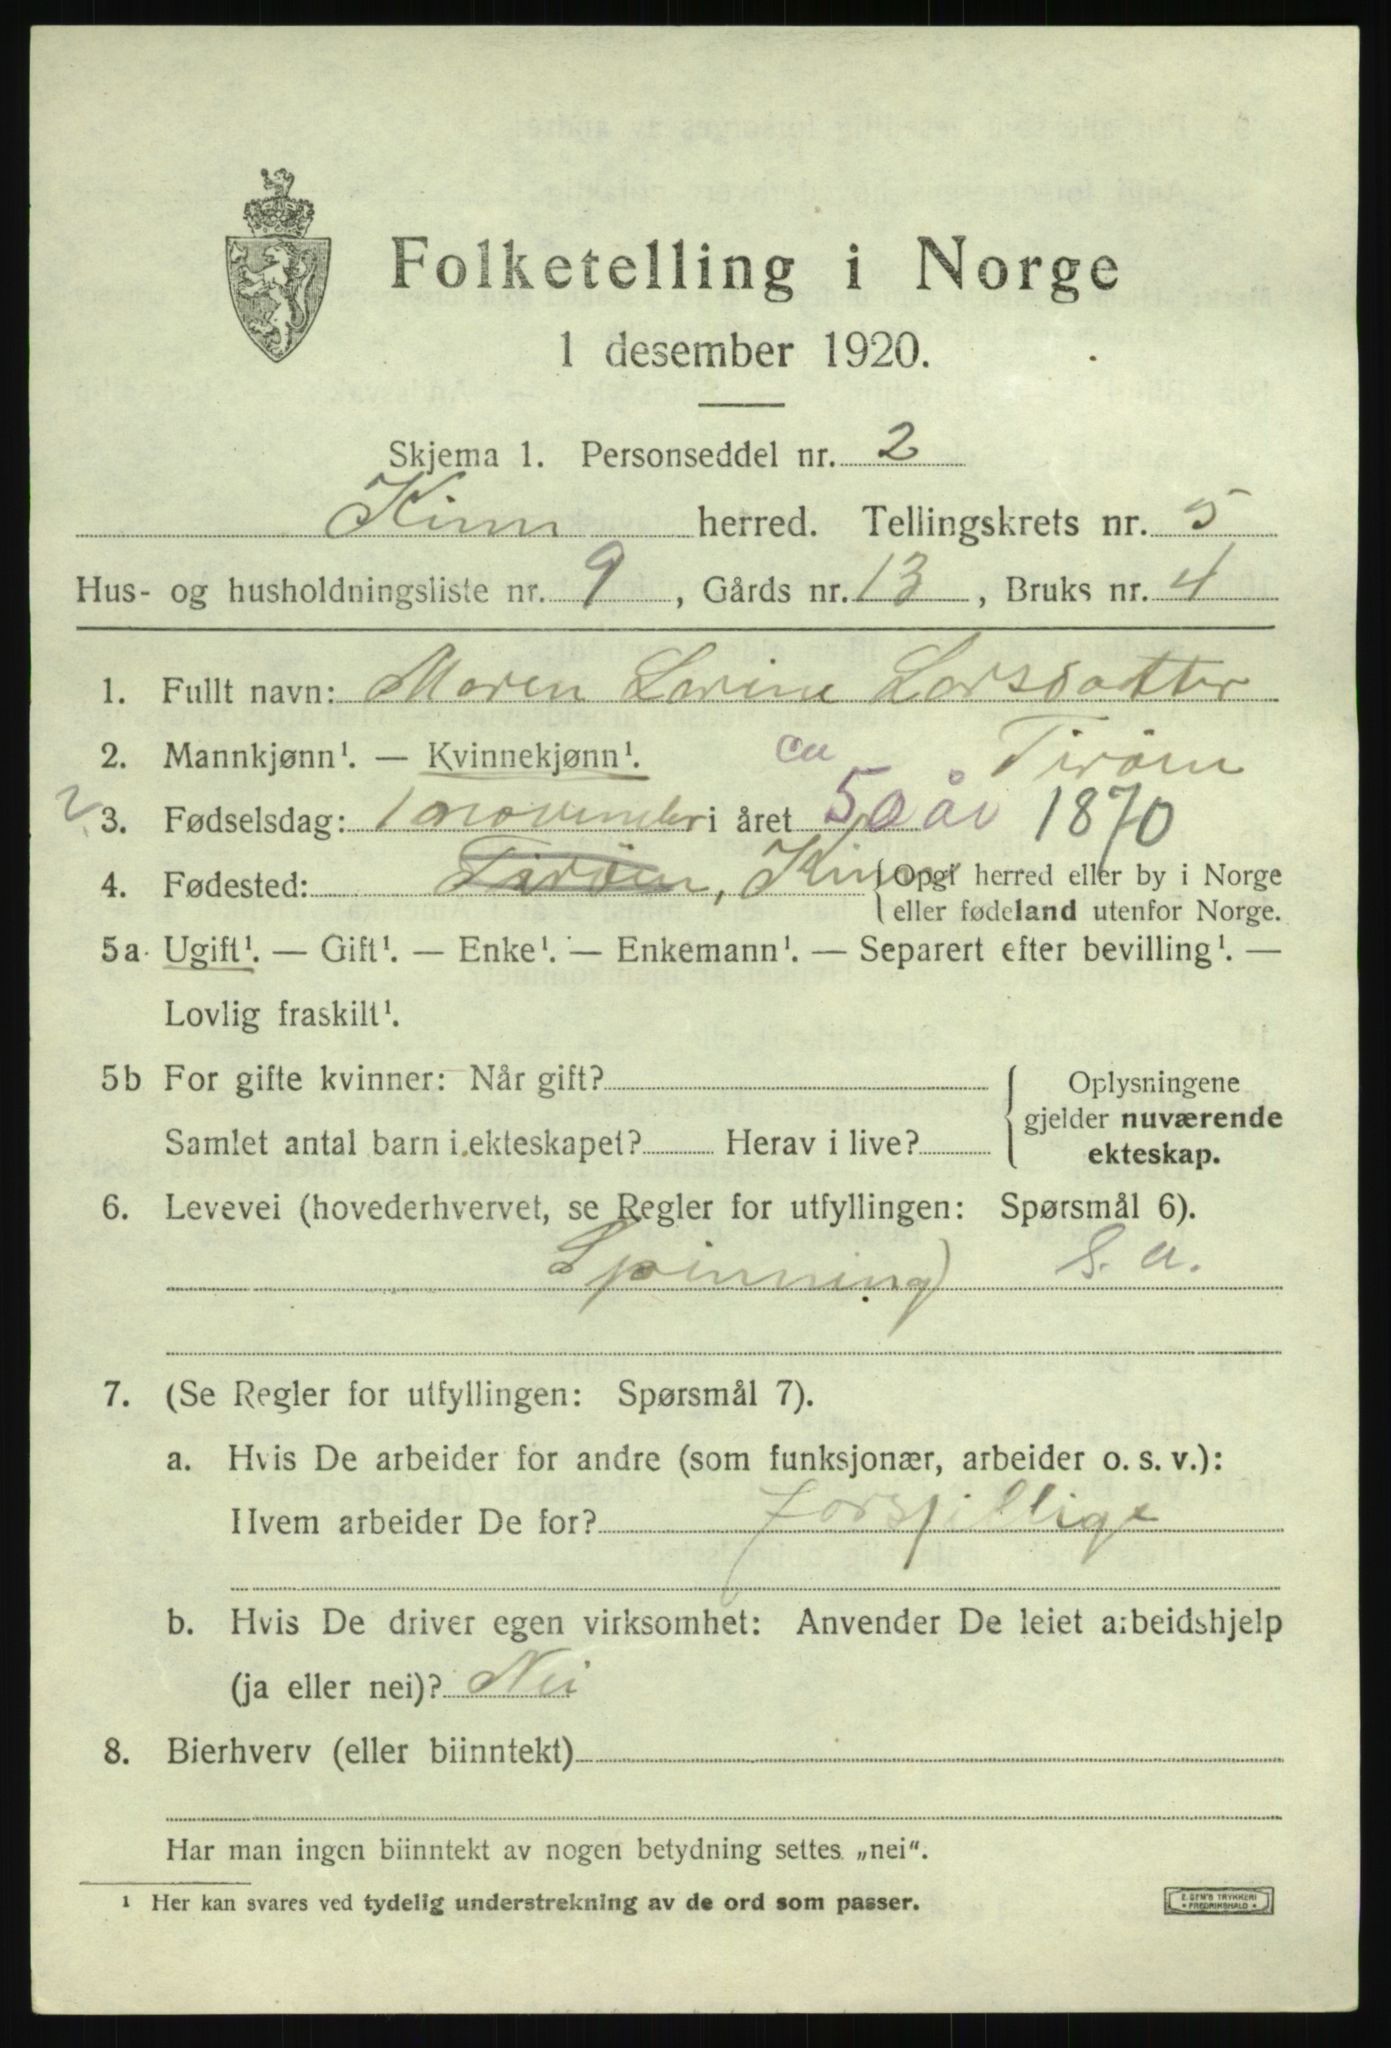 Folketelling i Norge
1 desember 1920.
Skjema 1. Personseddel nr. 2
Kinn herred. Tellingskrets nr. 5
Hus- og husholdningsliste nr. 9, Gårds nr. 13, Bruks nr. 4
1. Fullt navn: Maren Larine Larsdatter
2. Mannkjønn¹. — Kvinnekjønn¹. ca Tirøen
3. Fødselsdag: 1 november i året 50 år 1870
4. Fødested: Tirøen, Kinn {Opgi herred eller by i Norge
eller fødeland utenfor Norge.
5a. Ugift¹. — Gift¹. — Enke¹. — Enkemann¹. — Separert efter bevilling¹. —
Lovlig fraskilt¹.
5b For gifte kvinner: Når gift? Oplysningene
gjelder nuværende
Samlet antal barn i ekteskapet? Herav i live? ekteskap.
6. Levevei (hovederhvervet, se Regler for utfyllingen: Spørsmål 6).
Spinning) S. a.
7. (Se Regler for utfyllingen: Spørsmål 7).
a. Hvis De arbeider for andre (som funksjonær, arbeider o. s. v.):
Hvem arbeider De for? forsjillige
b. Hvis De driver egen virksomhet: Anvender De leiet arbeidshjelp
(ja eller nei)? Nei
8. Bierhverv (eller biinntekt)
Har man ingen biinntekt av nogen betydning settes „nei“.
¹ Her kan svares ved tydelig understrekning av de ord som passer.
E. SEM'S TRYKKERI
FREDRIKSHALD